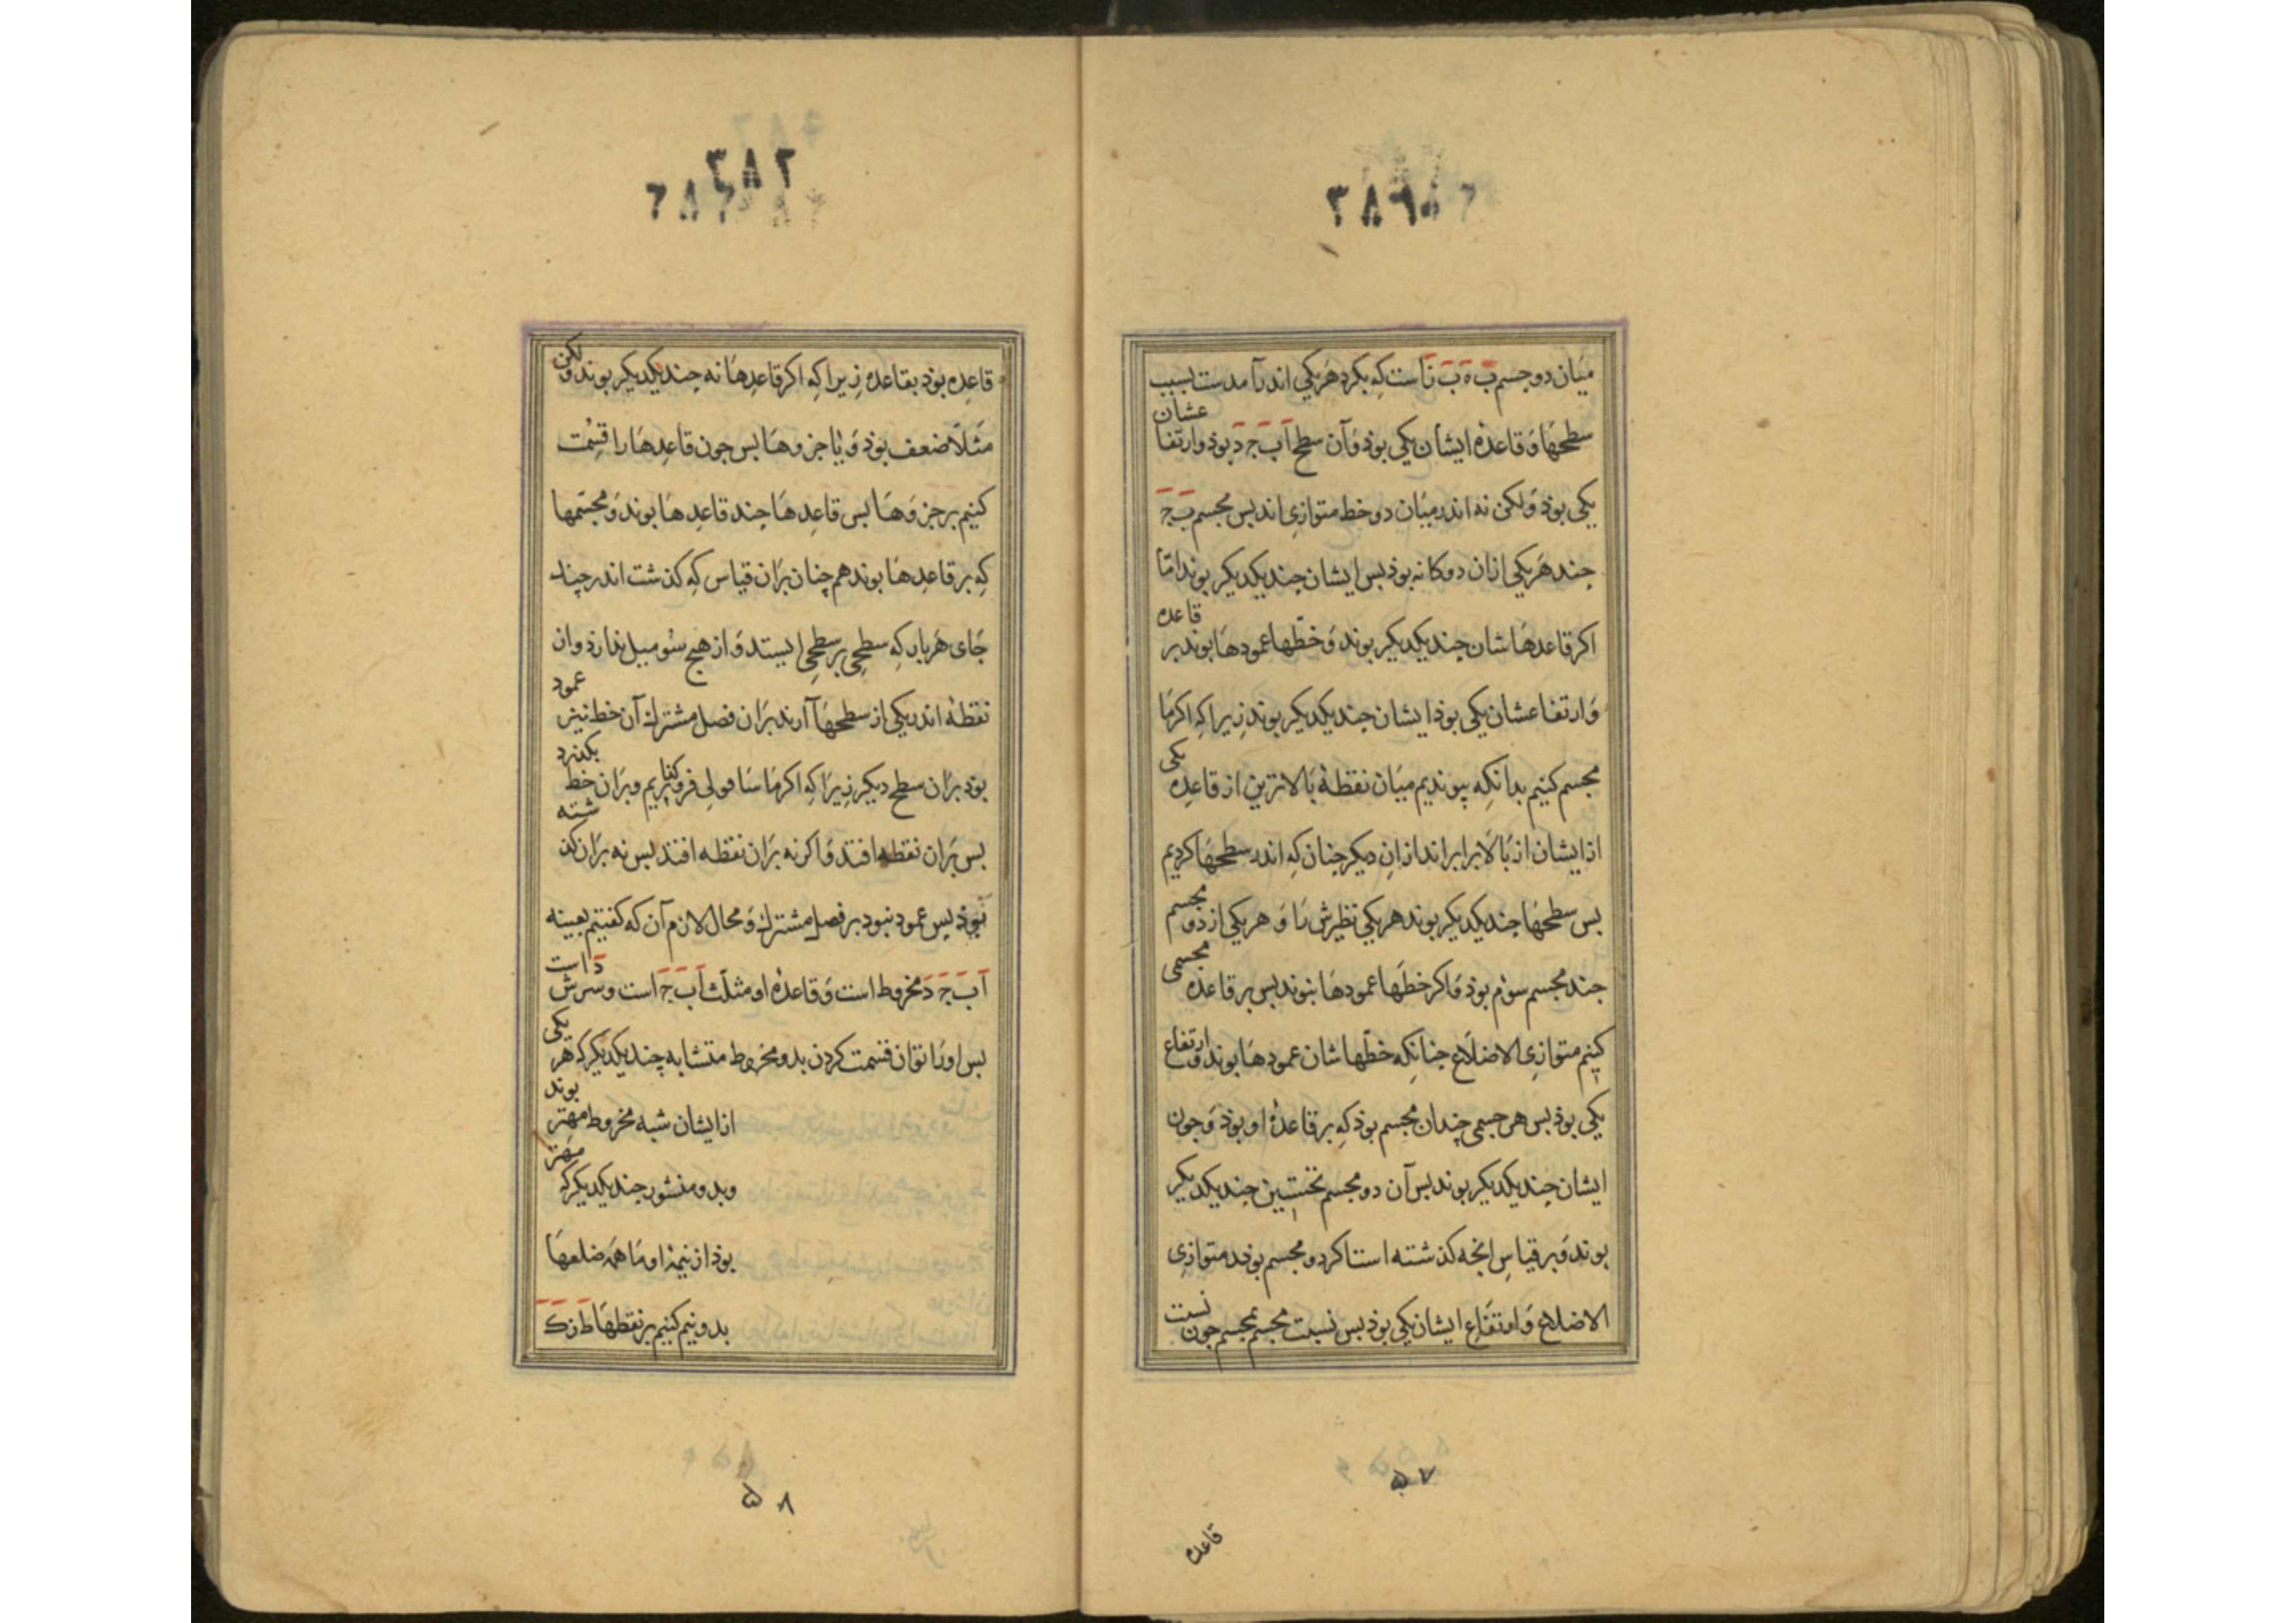 میان دو جسم ب ه ب ز است که بکرد هریکی اندر آمدست بسبب
سطحها و قاعدهٔ ایشان یکی بوذ و آن سطح اَ بَ جَ دَ بوذ و ارتفاعشان
یکی بوذ ولکن نه اندر میان دو خط متوازی اند بس مجسم بَ جَ
جند هریکی ازان دوکانه بوذ بس ایشان جند یکدیکر بوند اما
اکر قاعدهاشان جند یکدیکر بوند و خطها عمودها بوند بر قاعده
و ارتفاعشان یکی بوذ ایشان جند یکدیکر بوند زیرا که اکر ما
مجسم کنیم بدانکه پیوندیم میان نقطهٔ بالاترین از قاعدهٔ یکی
از ایشان از بالا برابر اندازان دیکر جنان که اندر سطحها کردیم
بس سطحها جند یکدیکر بوند هریکی نظیرش را و هریکی از دو مجسم
جند مجسم سوم بوذ و اکر خطها عمودها بنوند بس بر قاعده مجسمی
کنیم متوازی الاضلاع جنانکه خطها شان عمودها بوند و ارتفاع
یکی بوذ بس هر جسمی چندان مجسم بوذ که بر قاعدهٔ او بوذ و جون
ایشان جند یکدیکر بوند بس آن دو مجسم نخستین جند یکدیکر
بوند و بر قیاس انجه کذشته است اکر دو مجسم بوند متوازی
الاضلاع و ارتفاع ایشان یکی بوذ بس نسبت مجسم بمجسم جون نسبت
۵۷
قاعده
۲۸۲
قاعده بوذ بقاعده زیرا که اکر قاعدها نه جند یکدیکر بوند ولکن
مثلا ضعف بوذ و یا جزوها بس جون قاعدها را قسمت
کنیم بر جزوها بس قاعدها جند قاعدها بوند و مجسمها
که بر قاعدها بوند هم چنان بران قیاس که کذشت اندر چند
جای هربار که سطحی بر سطحی ایستد و از هیچ سو میل ندارد و ان
نقطهٔ اندر یکی از سطحها آرند بران فصل مشترک آن خط نیز عمود
بوذ بران سطح دیکر زیرا که اکر ما شاقولی فروکذاریم و بران خط بکذرد
بس بران نقطه افتد و اکر نه بران نقطه افتد بس نه بران کذشته
بوذ بس عمود نبود بر فصل مشترک و محال لازم آن که کفتیم بعینه
اَ بَ جَ دَ مخروط است و قاعدهٔ او مثلث اَ بَ جَ است و سرش دَ است
بس او را توان قسمت کردن بدو مخروط متشابه چند یکدیکر که هر یکی
از ایشان شبه مخروط مهتر بوند
و بدو منشور جند یکدیکر که مهتر
بوذ از نیمهٔ او ما همه ضلعها
بدو نیم کنیم بر نقطها طَ زَ کَ
۵۸